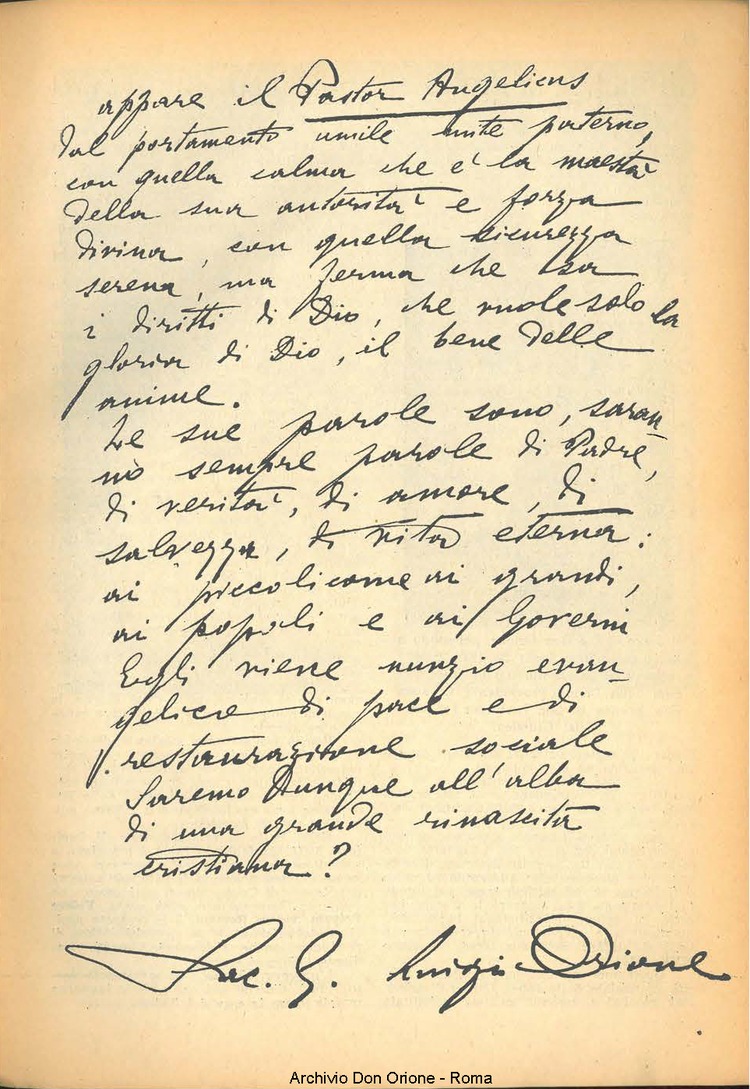 appare il Pastor Angelicus
dal portamento umile mite paterno,
con quella calma che e' la maestà
della sua autorità e forza
divina, con quella sicurezza
serena, ma ferma che
i diritti di Dio, che vuole solo la
gloria di Dio, il bene delle
anime.
Le sue parole sono, saran
nò sempre parole di Padre,
di verità, di amore, di
salvezza, di vita eterna:
ai piccoli come ai grandi,
ai popoli e ai Governi
Egli viene nunzio evan-
gelico di pace e di
restaurazione sociale
Saremo dunque all'alba
di una grande rinascita
cristiana?
Sac. G. Luigi Orione
Archivio Don Orione - Roma